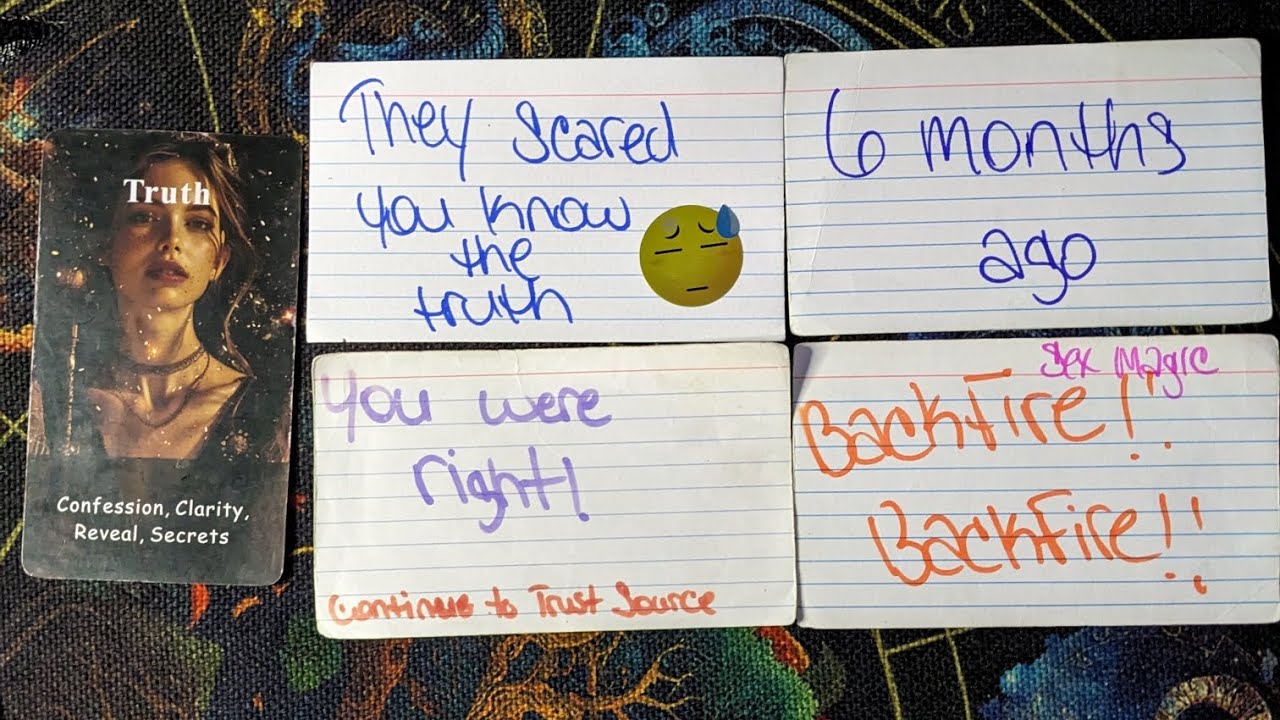 Truth
Confession, Clarity,
Reveal, Secrets
They scared
you know
the
truth
6 months
ago
You were
right!
Continue to Trust Source
Sex Magic
Backfire!!
Backfire!!